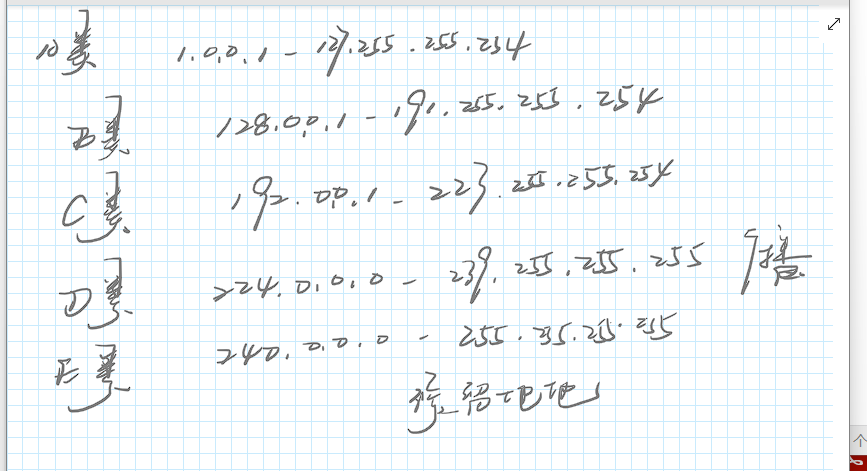 A类 1.0.0.1 - 127.255.255.254
B类 128.0.0.1 - 191.255.255.254
C类 192.0.0.1 - 223.255.255.254
D类 224.0.0.0 - 239.255.255.255 广播
E类 240.0.0.0 - 255.255.255.255
保留地址
个